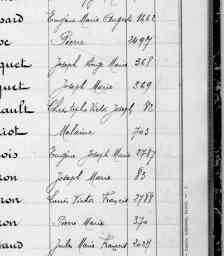 sard Eugène Marie Auguste 1662
se Pierre 2497
quet Joseph Ange Marie 368
quet Joseph Marie 369
ault Christophe Victor Joseph 83
iot Melaine 703
ois Eugène Joseph Marie 2787
ron Joseph Marie 83
ron Louis Victor François 2788
ron Pierre Marie 370
aud Jules Marie François 2027